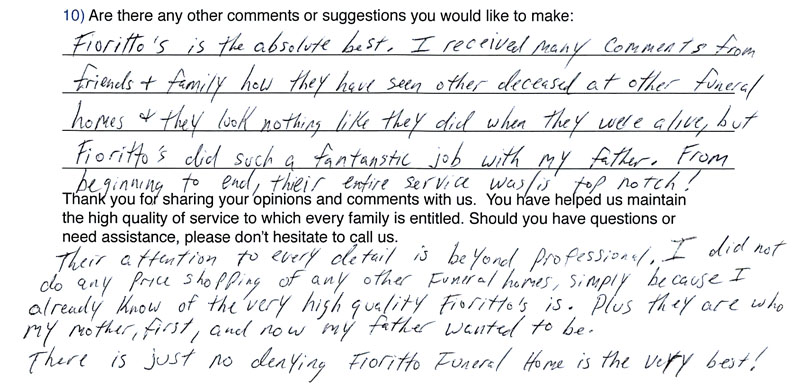 10) Are there any other comments or suggestions you would like to make:
Fioritto's is the absolute best. I received many comments from
friends + family how they have seen other deceased at other funeral
homes & they look nothing like they did when they were alive, but
Fioritto's did such a fantanstic job with my father. From
beginning to end, thieir entire service was/is top notch!
Thank you for sharing your opinions and comments with us. You have helped us maintain
the high quality of service to which every family is entitled. Should you have questions or
need assistance, please don't hesitate to call us.
Their attention to every detail is beyond professional. I did not
do any price shopping of any other Funeral homes, simply because I
already know of the very high quality Fioritto's is. Plus they are who
my mother, first, and now my father wanted to be.
There is just no denying Fioritto Funeral Home is the very best!